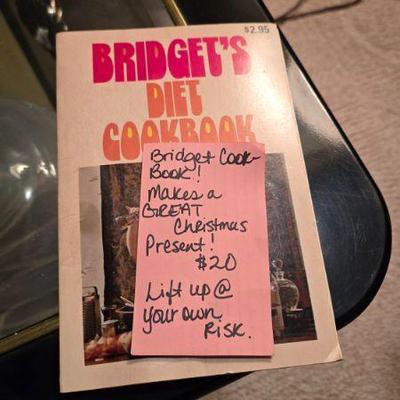 $2.95
BRIDGET'S
DIET
COOKBOOK
Bridget Cook-
Book!
Makes a
GREAT
Christmas
Present!
$20
Lift up @
your own
Risk.